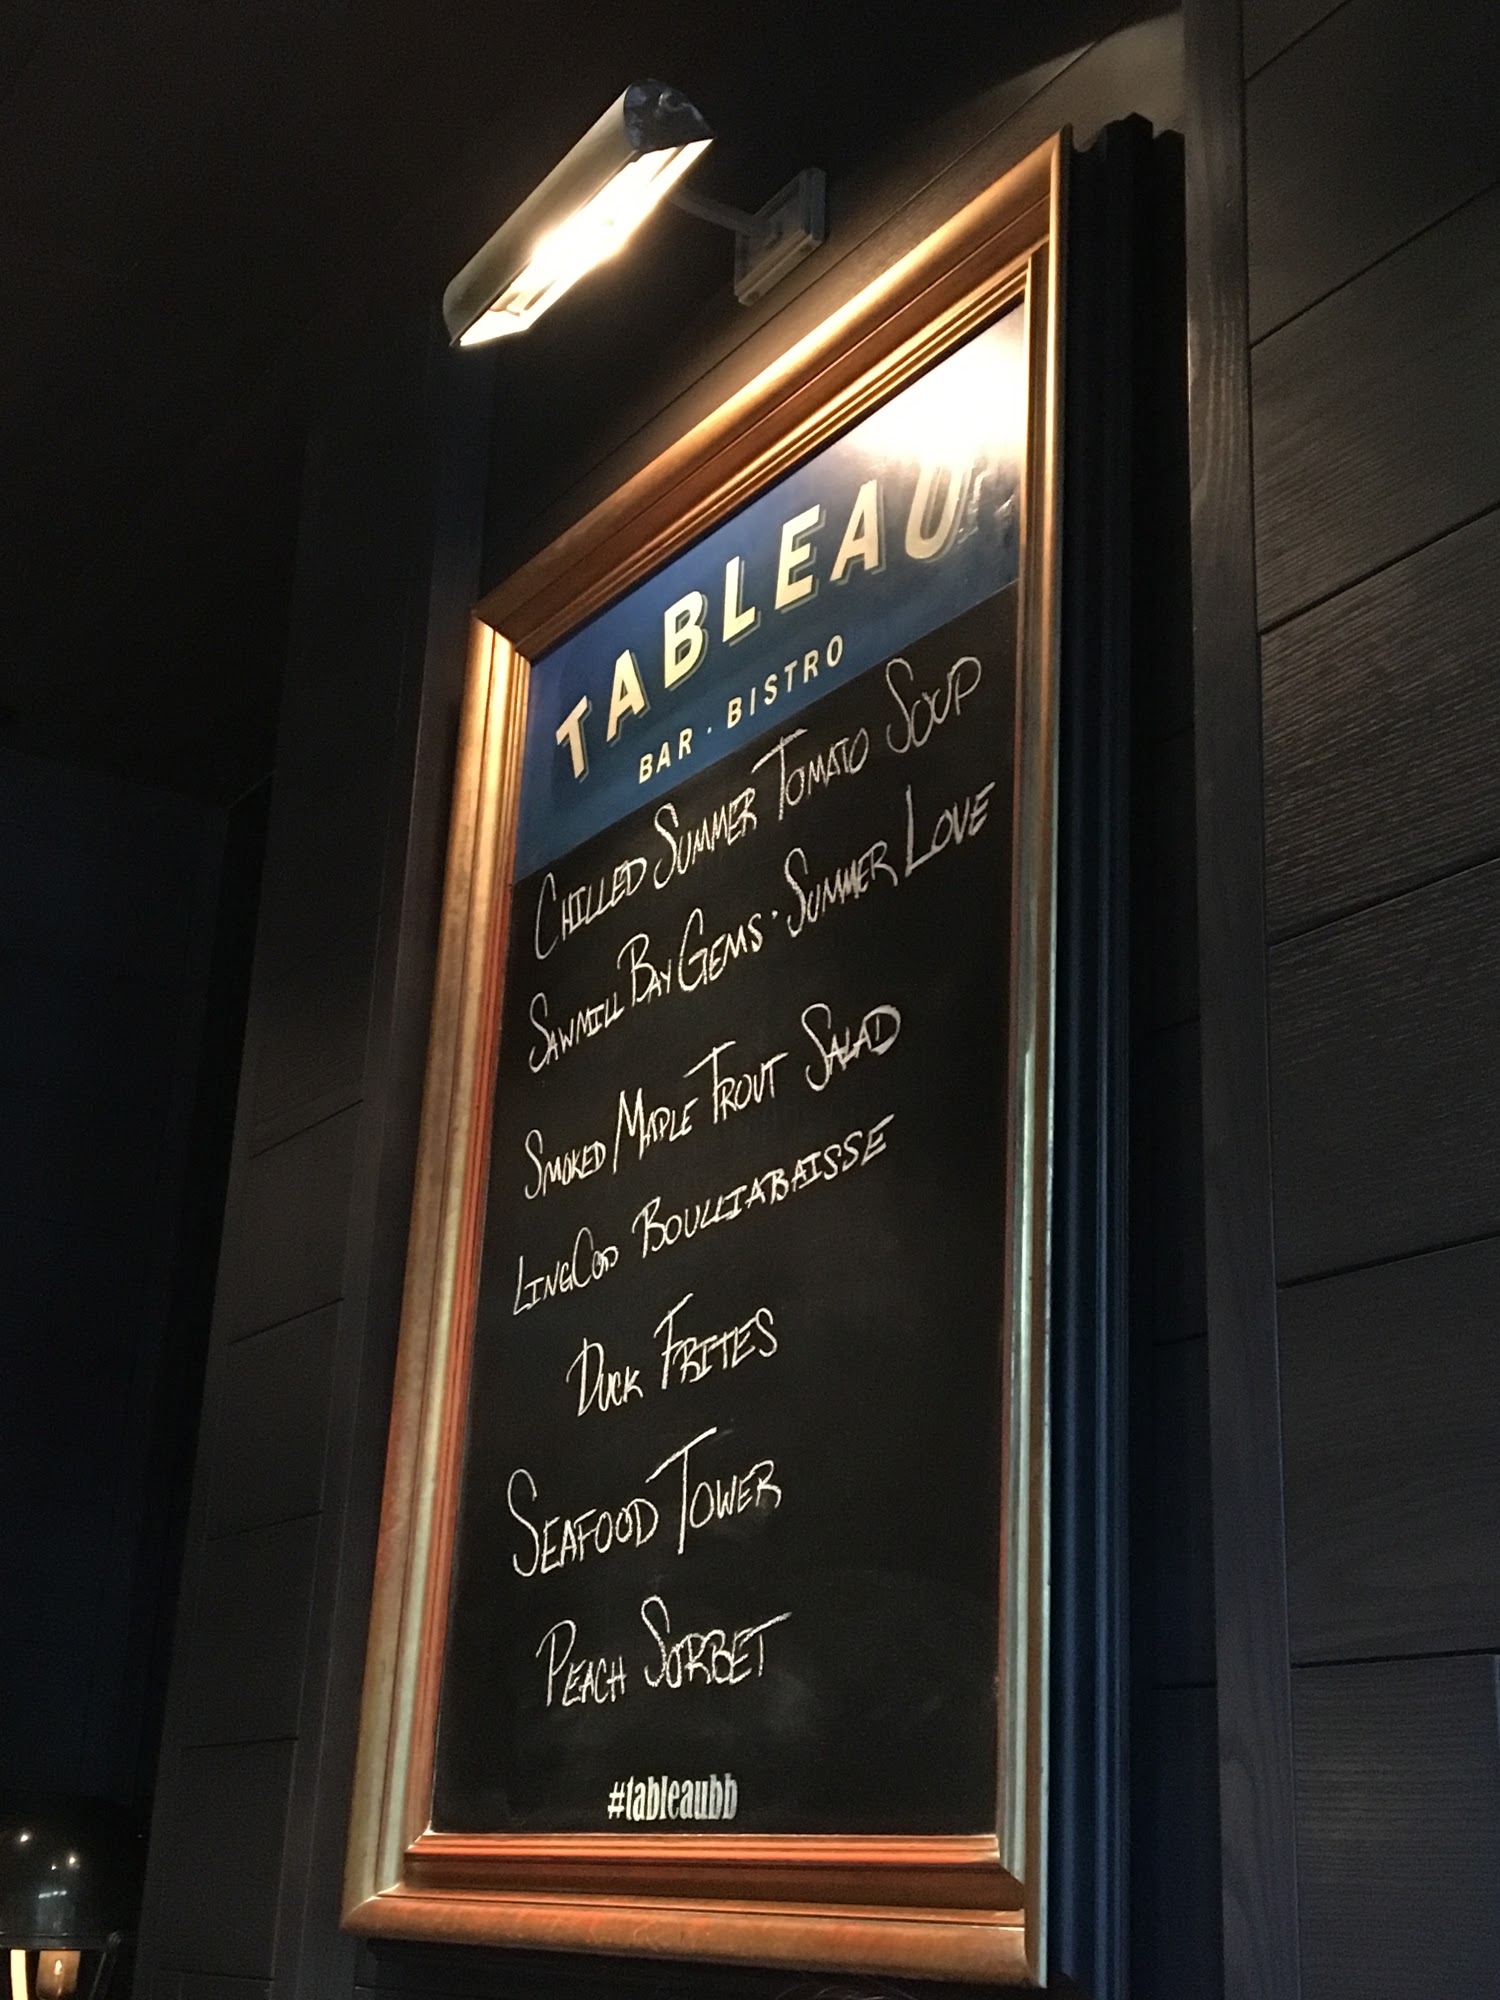 TABLEAU
BAR · BISTRO
CHILLED SUMMER TOMATO SOUP
SAWMILL BAY GEMS · SUMMER LOVE
SMOKED MAPLE TROUT SALAD
LINGCOD BOULLIABAISSE
DUCK FRITES
SEAFOOD TOWER
PEACH SORBET
#tableaubb